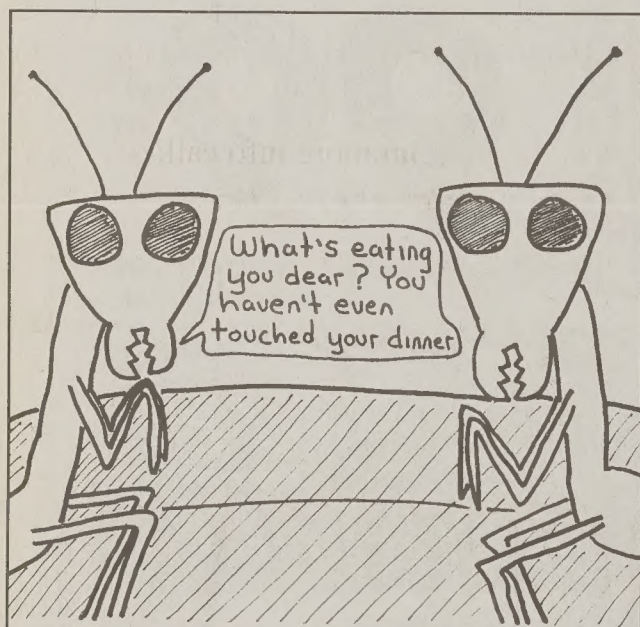 What's eating
you dear? You
haven't even
touched your dinner